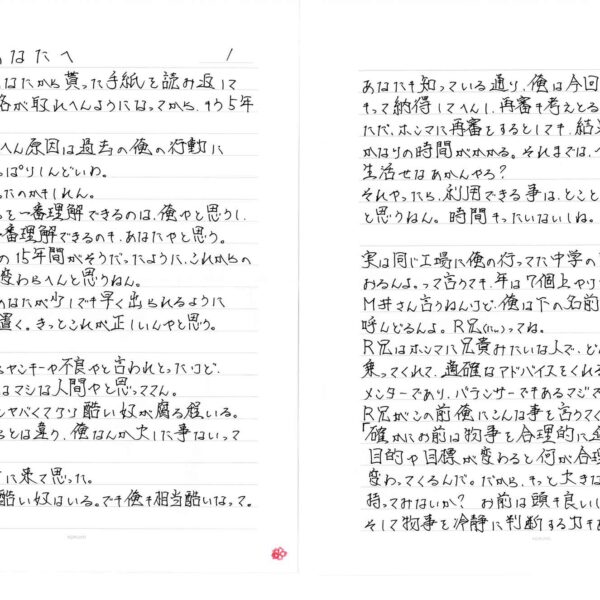 なたへ
1
なたから貰った手紙を読み返して
絡が取れへんようになってから、もう5年
へん原因は過去の俺の行動に
っぱりしんどいわ。
ったのかもしれん。
を一番理解できるのは、俺やと思うし、
一番理解できるのも、あなたやと思う。
の15年間がそうだったように、これからの
変わらへんと思うねん。
のあなたが少しでも早く出られるように
置く。きっとこれが正しいんやと思う。
ヤンキーや不良やと言われとったけど、
はマシな人間やと思っててん。
とやばくてクソ酷い奴が腐る程いる。
るとは違う、俺なんか大した事ないって
に来て思った。
酷い奴はいる。でも俺も相当酷いなって。
あなたも知っている通り、俺は今回
もって納得してへんし、再審も考えとる
ただ、ホンマに再審をするとしても、結
かなりの時間がかかる。それまでは、
生活せなあかんやろ?
それやったら、利用できる事は、とこと
と思うねん。時間もったいないしね。
実は同じ工場に俺の行ってた中学の
おるんよ。って言うても、年は7個上やけ
M井さん言うねんけど、俺は下の名前
呼んどるんよ。R兄(にい)ってね。
R兄はホンマに兄貴みたいな人で、ど
乗ってくれて、適確なアドバイスをくれる
メンターであり、バランサーでもあるマジで
R兄がこの前俺にこんな事を言うてく
「確かにお前は物事を合理的に
目的や目標が変わると何が合理
変わってくるんだ。だから、もっと大きな
持ってみないか? お前は頭も良いし
そして物事を冷静に判断する力もあ